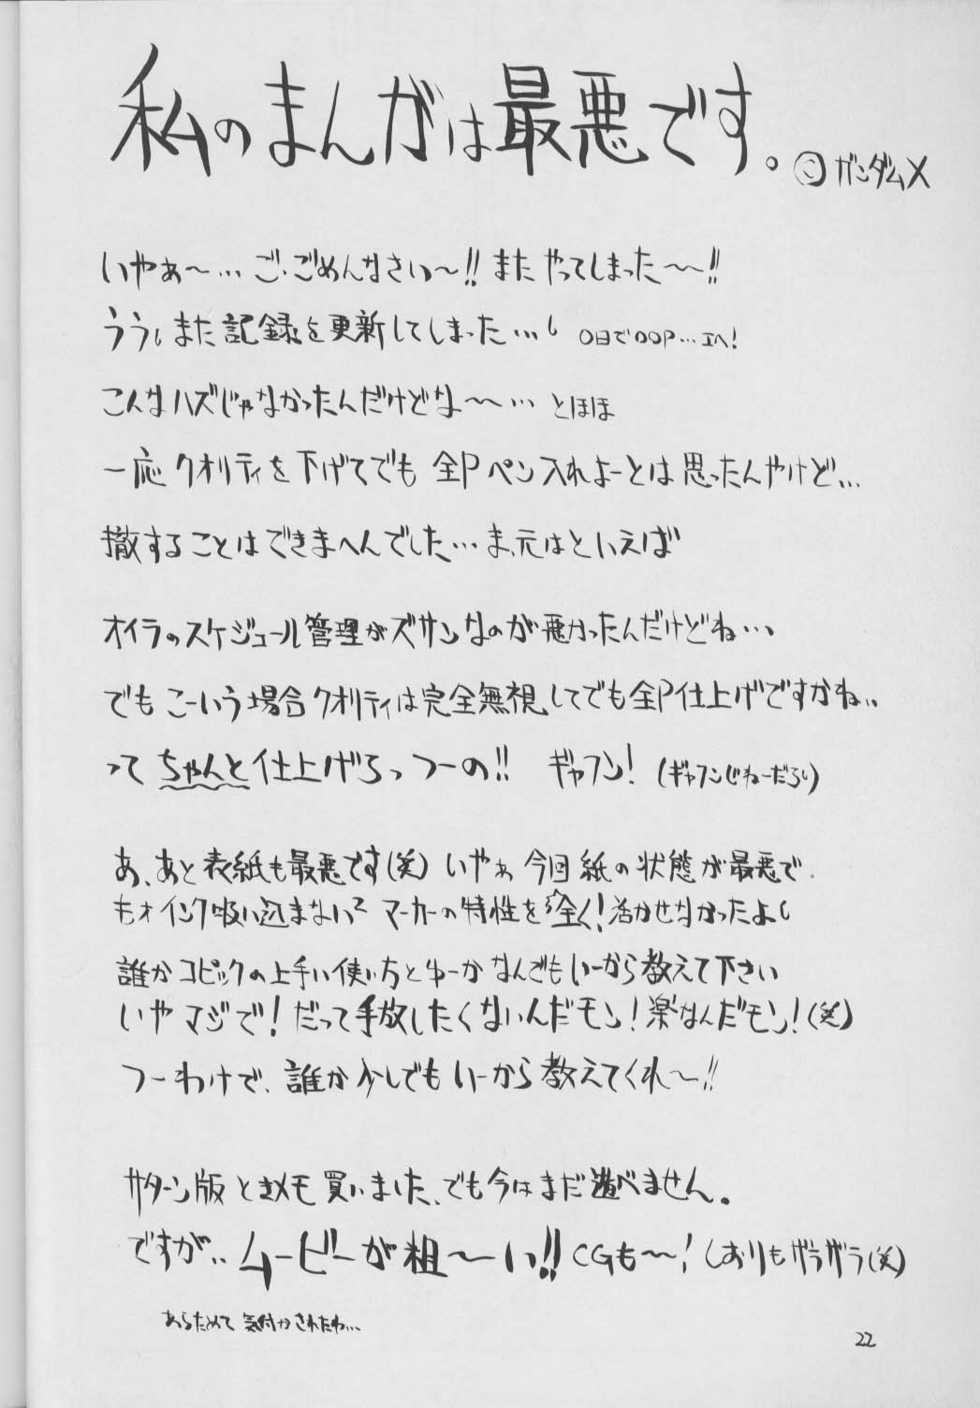 私のまんがは最悪です。
©ガンダムX
いやぁ〜… ご・ごめんなさい〜!! また やってしまった〜〜!!
うう、また記録を更新してしまった…。 〇日で〇〇P…エヘ!
こんなハズじゃなかったんだけどな〜〜… とほほ
一応 クオリティを下げてでも 全Pペン入れよーとは思ったんやけど…
撤することはできまへんでした… ま、元はといえば
オイラのスケジュール管理がズサンなのが悪かったんだけどね…
でもこーいう場合クオリティは完全無視してでも全P仕上げですかね..
って ちゃんと仕上げろっつーの!! ギャフン! (ギャフンじねーだろい)
あ、あと表紙も最悪です(笑) いやぁ今回紙の状態が最悪で
もォインク吸い込まないで マーカーの特性を全く!活かせなかったよ。
誰かコピックの上手い使い方とゆーかなんでもいーから教えて下さい
いやマジで! だって手放したくないんだモン! 楽なんだモン! (笑)
つーわけで、誰か少しでもいーから教えてくれ〜!!
サターン版ときメモ買いました、でも今はまだ遊べません。
ですが.. ムービーが粗〜い!! CGも〜〜! しおりもザラザラ(笑)
あらためて気付かされたわ…
22